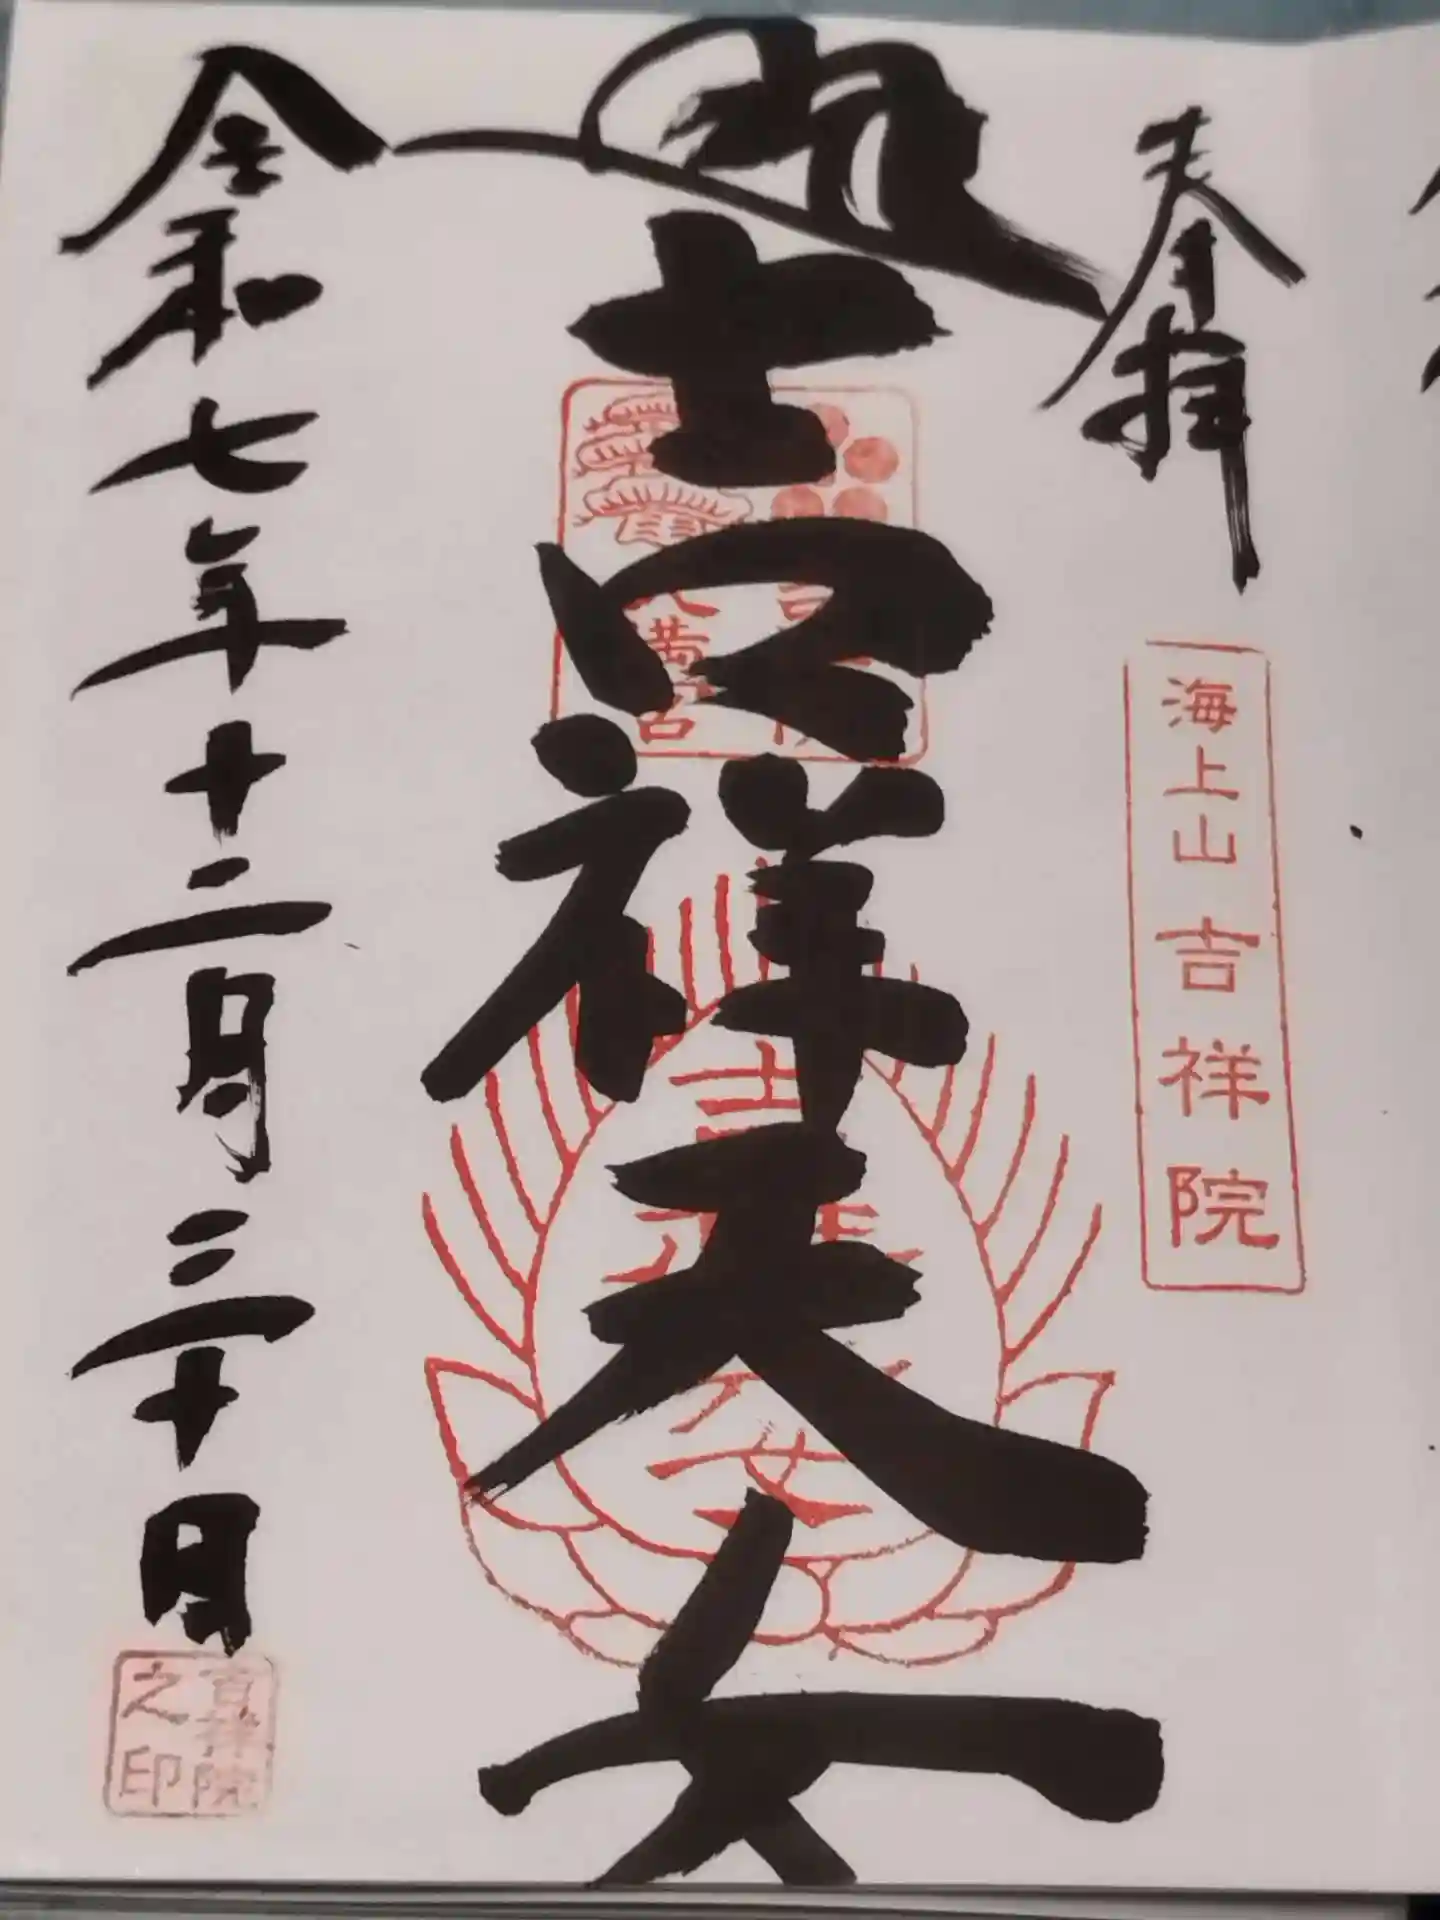 奉拝
海上山吉祥院
吉祥天女
令和七年十二月三十日
吉祥院
之印